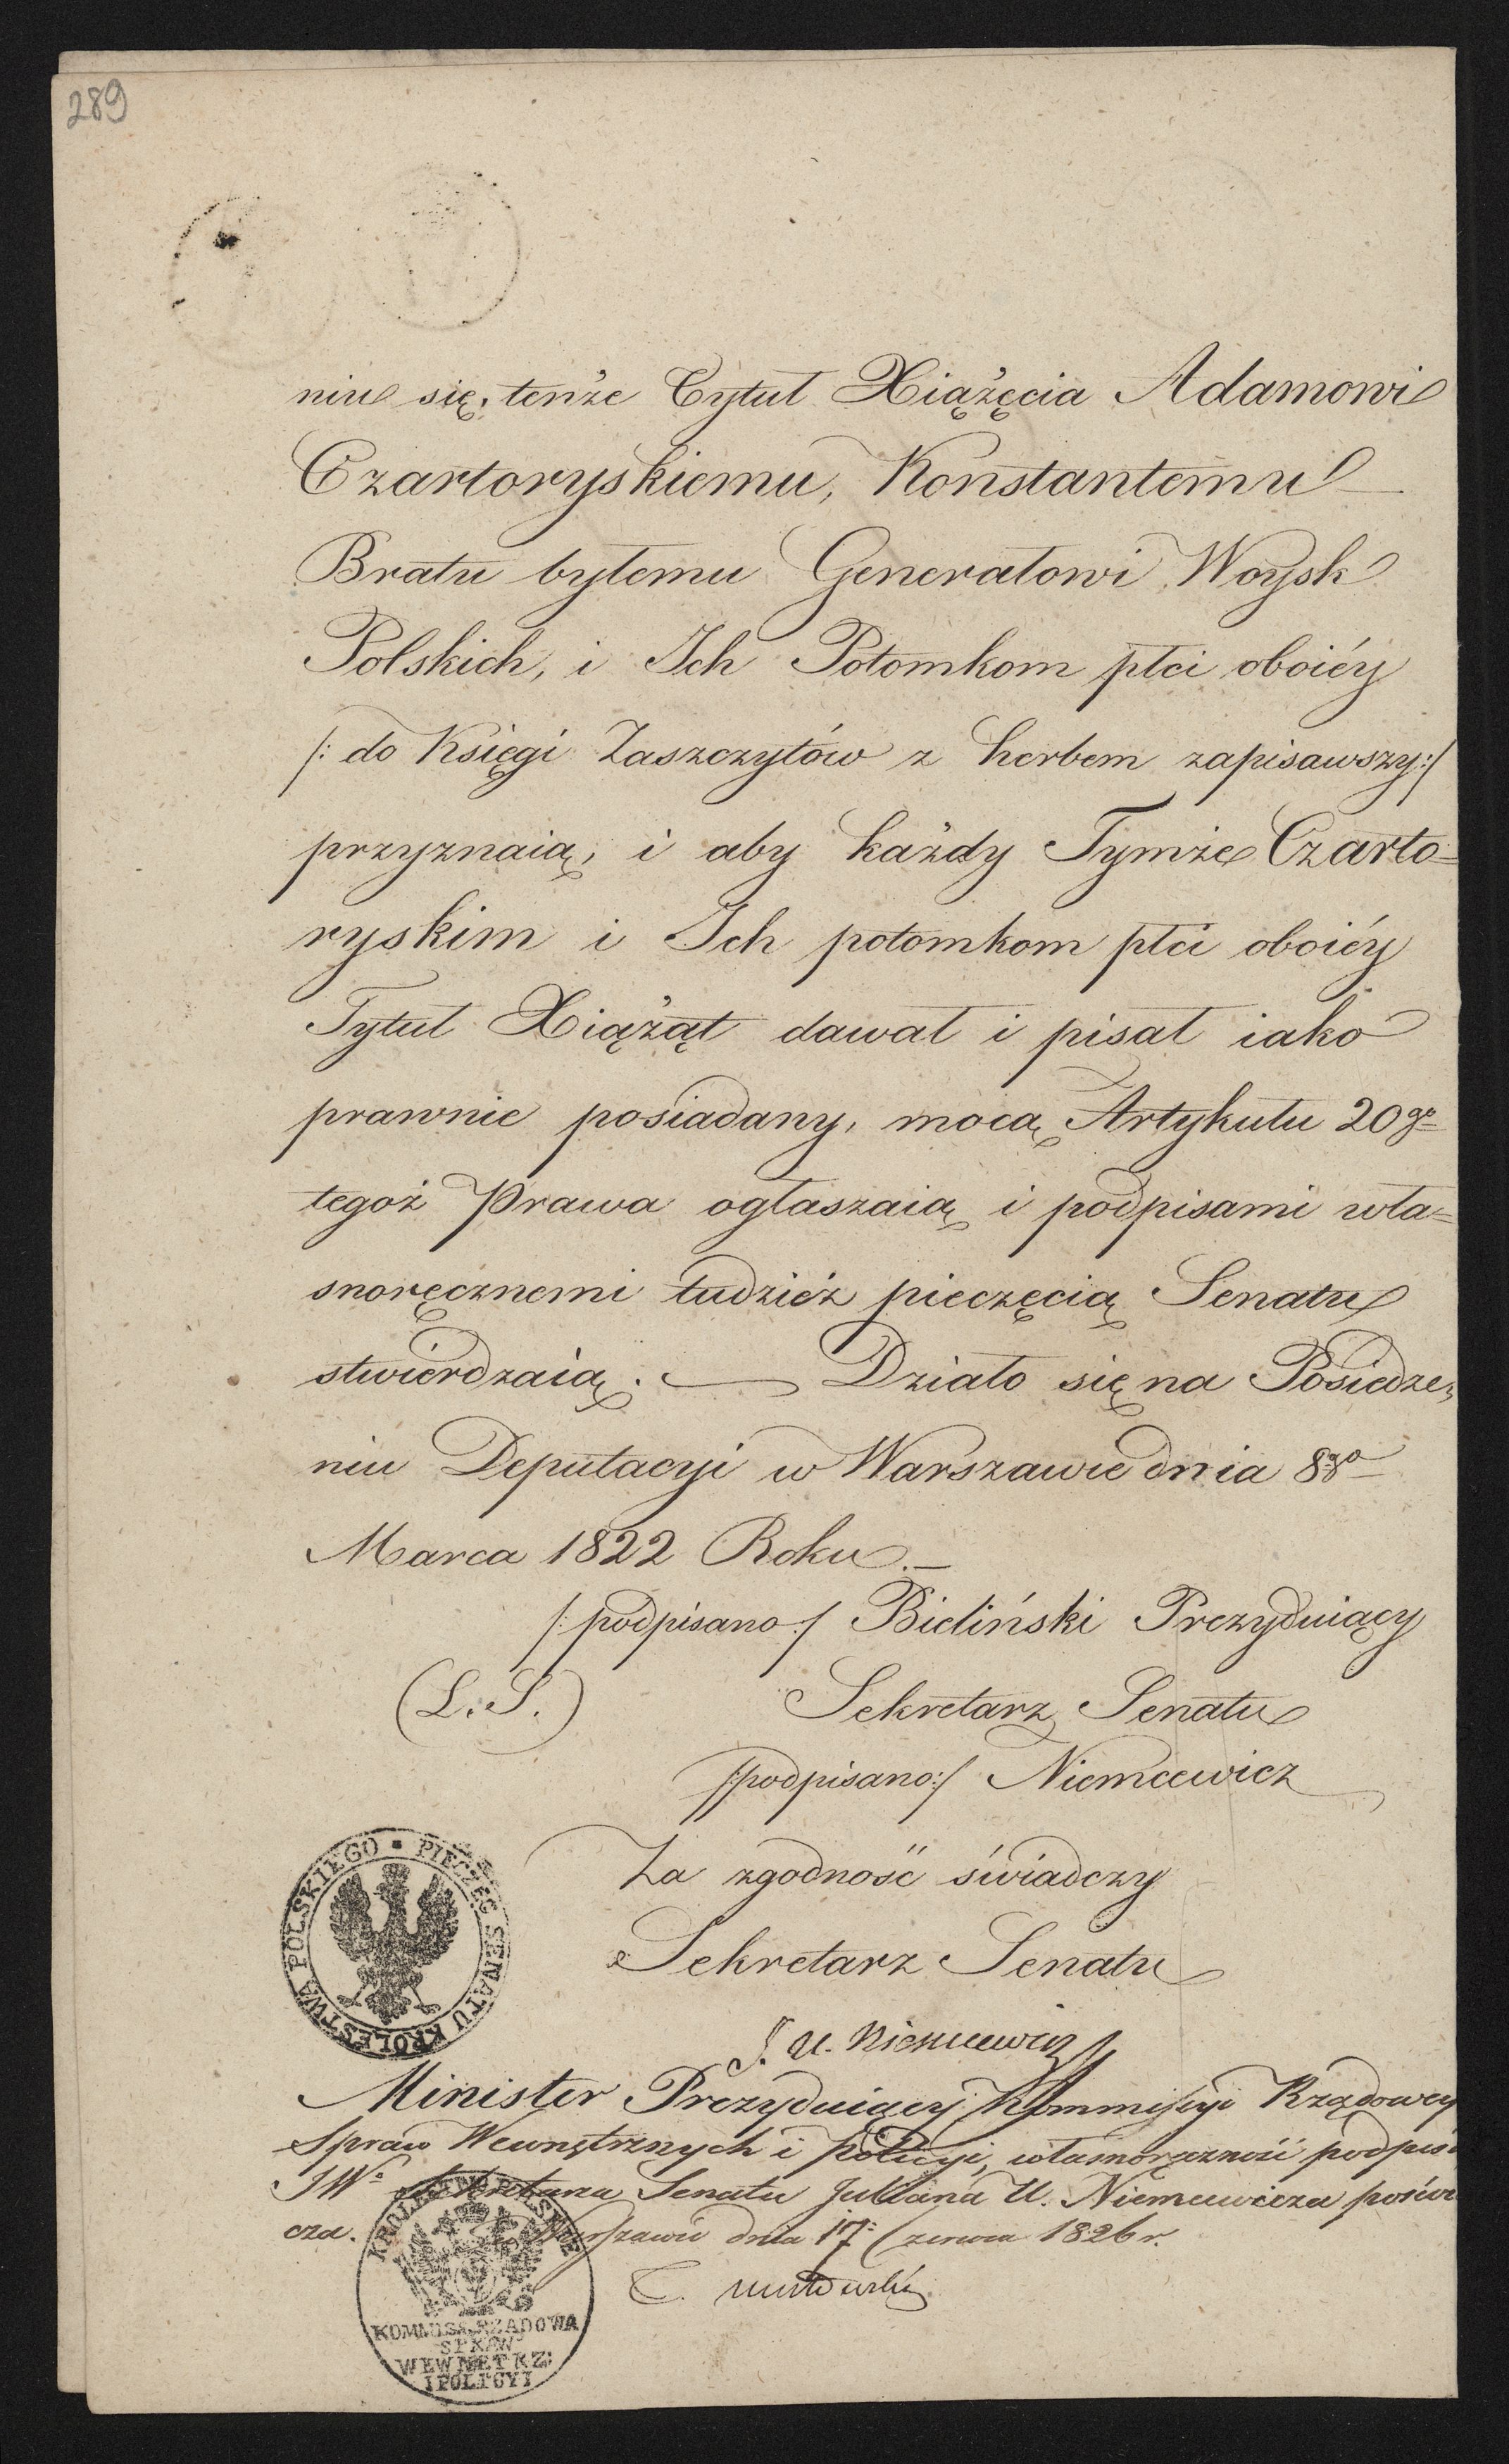 289
niu się, tenże Tytuł Xiążęcia Adamowi
Czartoryskiemu, Konstantemu
Bratu byłemu Generałowi Woysk
Polskich, i Ich Potomkom płci oboiéy
/: do Księgi Zaszczytów z herbem zapisawszy :/
przyznaią, i aby każdy Tymże Czarto=
ryskim i Ich potomkom płci oboiéy
Tytuł Xiążąt dawał i pisał iako
prawnie posiadany, mocą Artykułu 20go
tegoż Prawa ogłaszaią i podpisami wła=
snoręcznemi tudzież pieczęcią Senatu
stwierdzaią. — Działo się na Posiedze=
niu Deputacyi w Warszawie dnia 8go
Marca 1822 Roku. —
/: podpisano :/ Bieliński Prezyduiący
(L. S.) Sekretarz Senatu
/: podpisano :/ Niemcewicz
Za zgodność świadczy
Sekretarz Senatu
PIECZĘĆ SENATU KROLESTWA POLSKIEGO
J. U. Niemcewicz
Minister Prezyduiący w Kommissyi Rządowey
Spraw Wewnętrznych i Policyi, własnoręczność podpisu
JWo Sekretarza Senatu Juliana U. Niemcewicza poświad
cza. w Warszawie dnia 17. Czerwca 1826 r.
T. Mostowski
KROLESTWO POLSKIE
KOMMISSA RZADOWA
SPRAW
WEWNETRZ:
I POLICYI